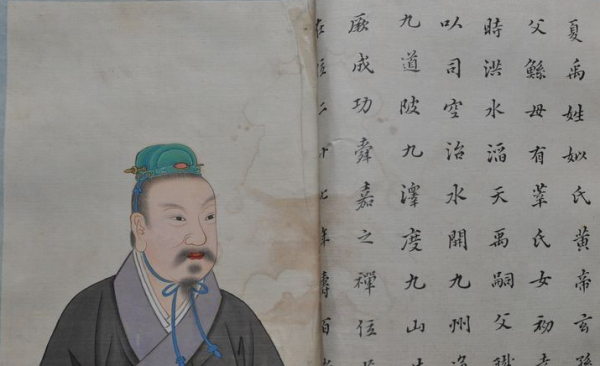 夏禹姓姒氏黃帝玄孫
父鯀母有莘氏女初
時洪水滔天禹嗣父職
以司空治水開九州
九道陂九澤度九山
厥成功舜嘉之禪位
在位二十七年壽百